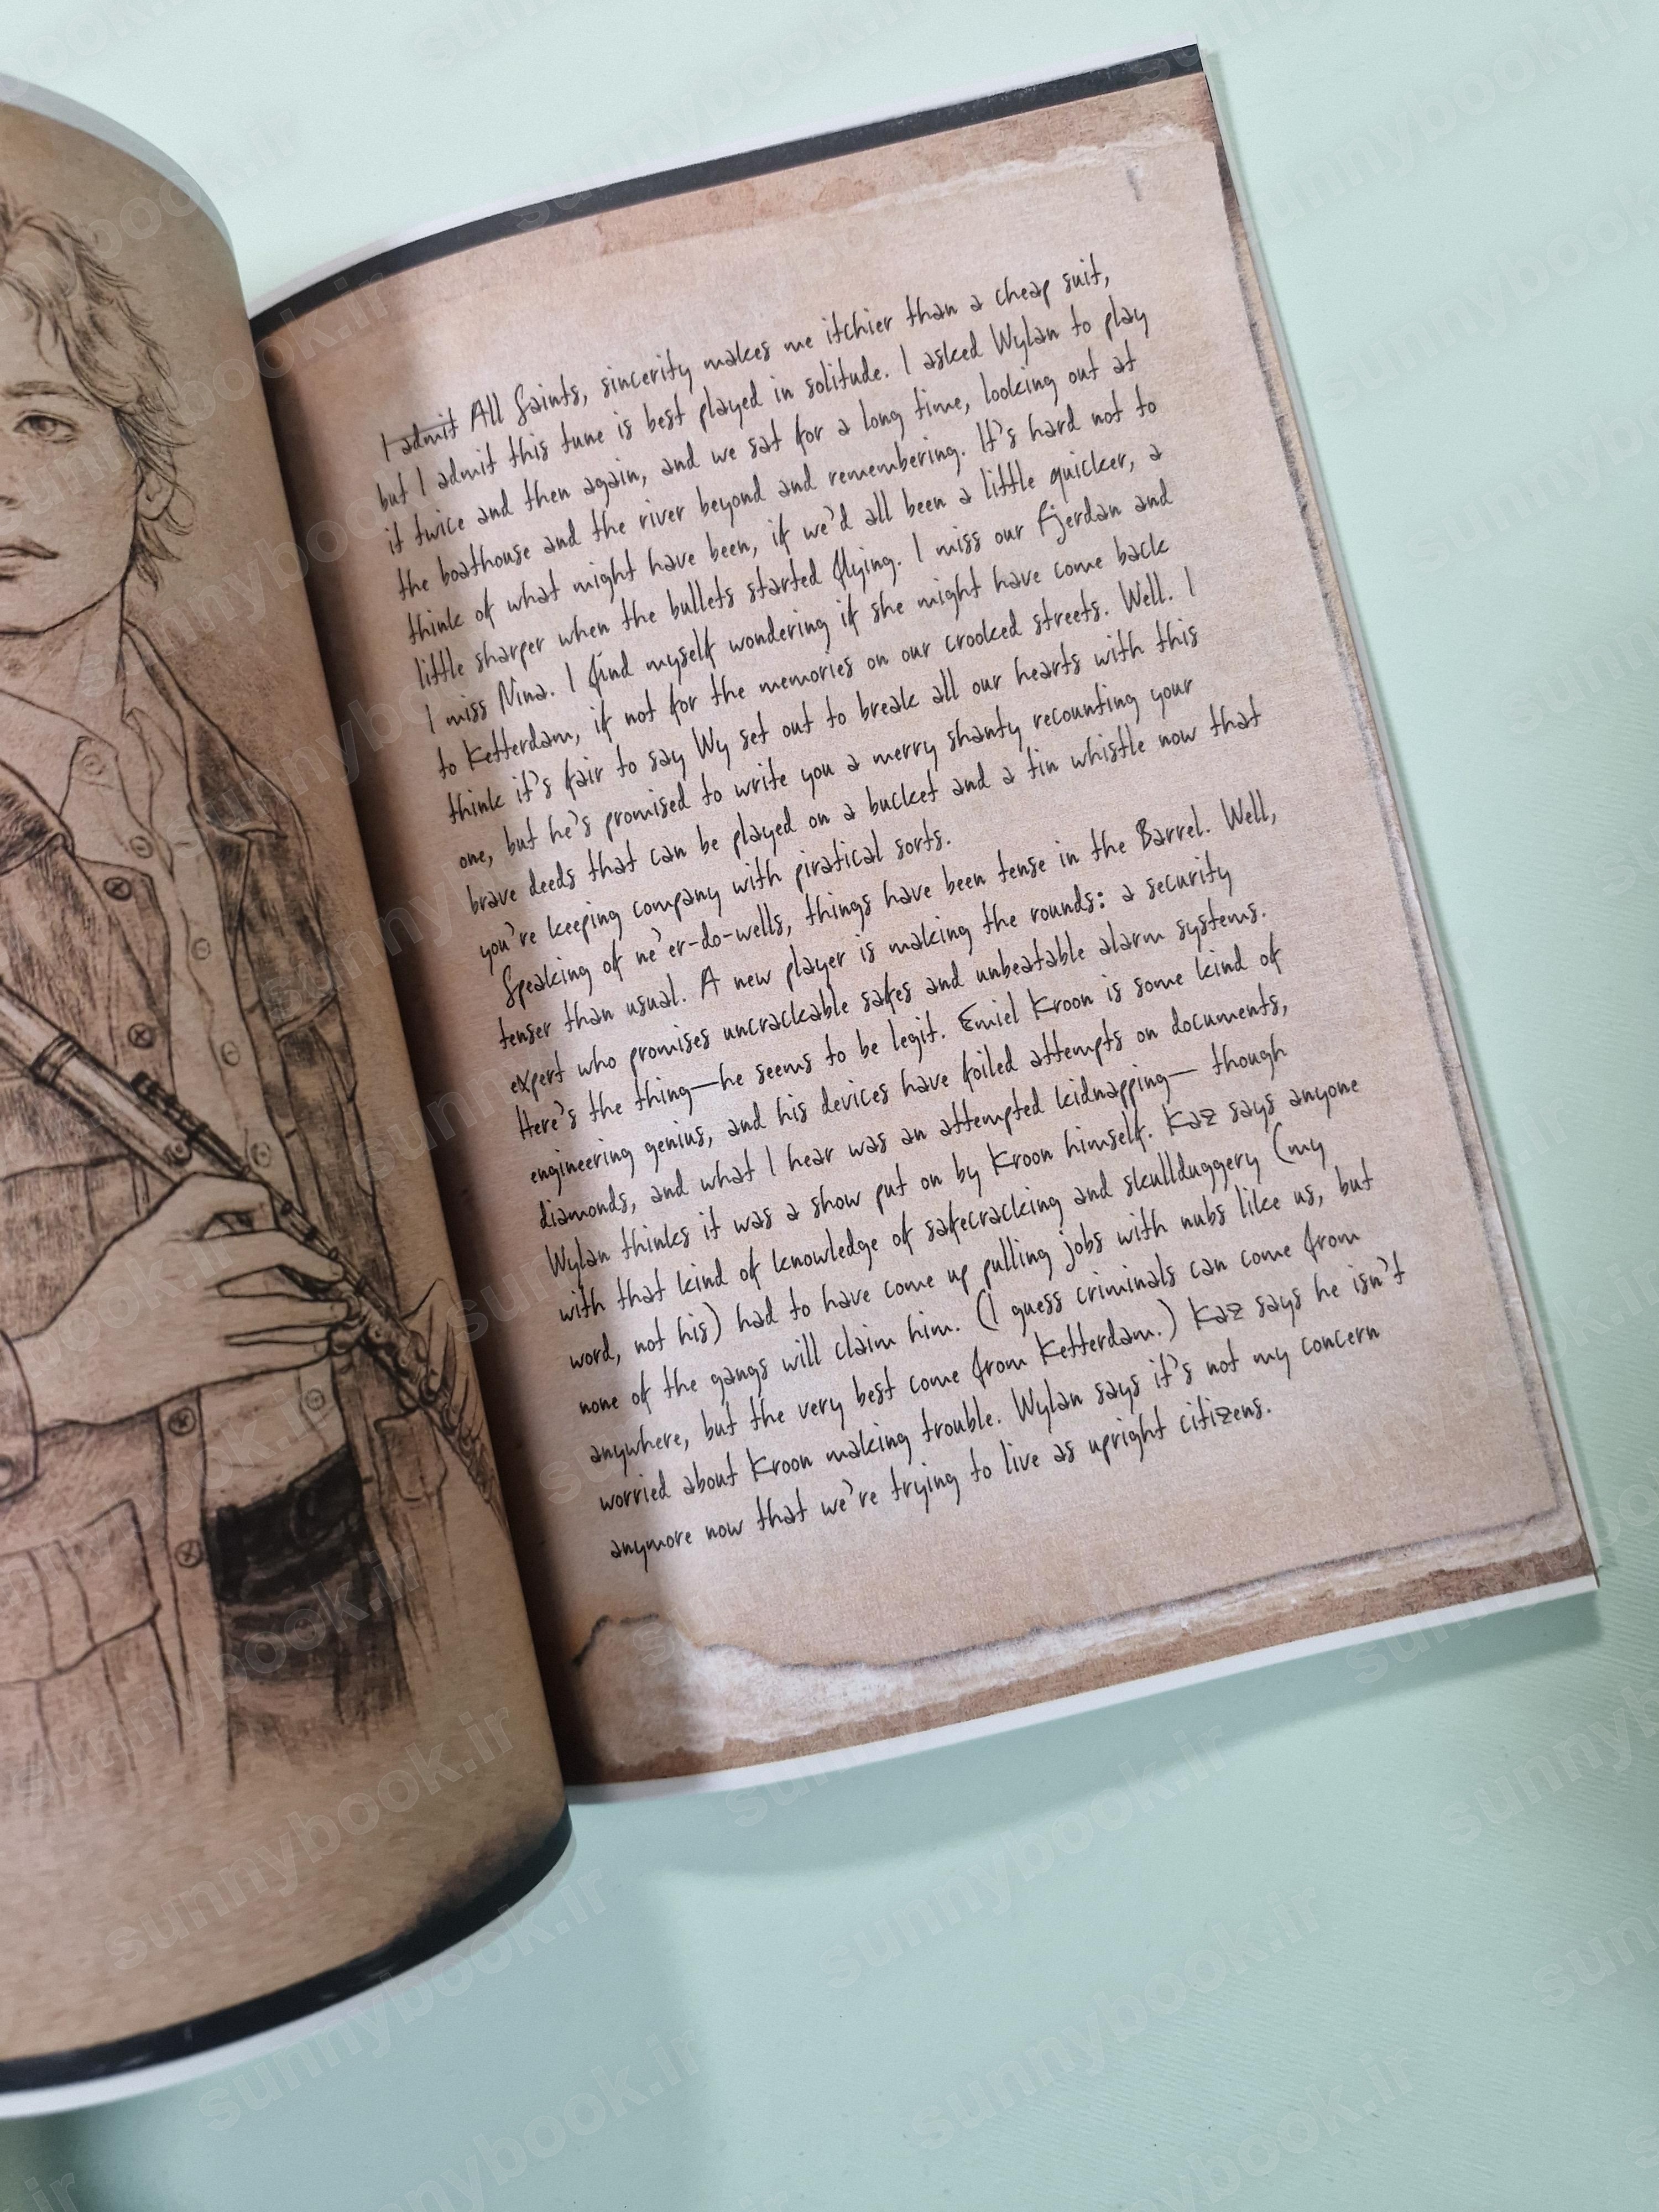 I admit All Saints, sincerity makes me itchier than a cheap suit,
but I admit this tune is best played in solitude. I asked Wylan to play
it twice and then again, and we sat for a long time, looking out at
the boathouse and the river beyond and remembering. It's hard not to
think of what might have been, if we'd all been a little quicker, a
little sharper when the bullets started flying. I miss our Fjerdan and
I miss Nina. I find myself wondering if she might have come back
to Ketterdam, if not for the memories on our crooked streets. Well. I
think it's fair to say Wy set out to break all our hearts with this
one, but he's promised to write you a merry shanty recounting your
brave deeds that can be played on a bucket and a tin whistle now that
you're keeping company with piratical sorts.
Speaking of ne'er-do-wells, things have been tense in the Barrel. Well,
tenser than usual. A new player is making the rounds: a security
expert who promises uncrackable safes and unbeatable alarm systems.
Here's the thing—he seems to be legit. Emiel Kroon is some kind of
engineering genius, and his devices have foiled attempts on documents,
diamonds, and what I hear was an attempted kidnapping— though
Wylan thinks it was a show put on by Kroon himself. Kaz says anyone
with that kind of knowledge of safecracking and skullduggery (my
word, not his) had to have come up pulling jobs with nubs like us, but
none of the gangs will claim him. (I guess criminals can come from
anywhere, but the very best come from Ketterdam.) Kaz says he isn't
worried about Kroon making trouble. Wylan says it's not my concern
anymore now that we're trying to live as upright citizens.
sunnybook.ir